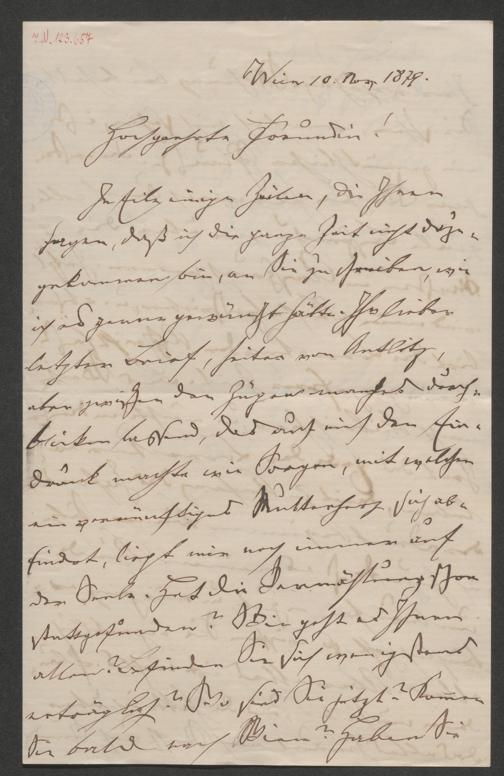 I.N. 123.657
Wien 10. Nov 1879.
Hochgeehrte Freundin!
In Eile einige Zeilen, die Ihnen
sagen, daß ich die ganze Zeit nicht dazu-
gekommen bin, an Sie zu schreiben, wie
ich es gerne gewünscht hätte. Ihr lieber
letzter Brief, heiter von Antlitz,
aber zwischen den Zügen manches durch-
blicken lassend, das auf mich den Ein-
druck machte wie Sorgen, mit welchen
ein vernünftiges Mutterherz sich ab-
findet, liegt mir noch immer auf
der Seele. Hat die Vermählung schon
stattgefunden? Wie geht es Ihnen
allen? Befinden Sie sich wenigstens
erträglich? Wo sind Sie jetzt? Kommen
Sie bald nach Wien? Haben Sie